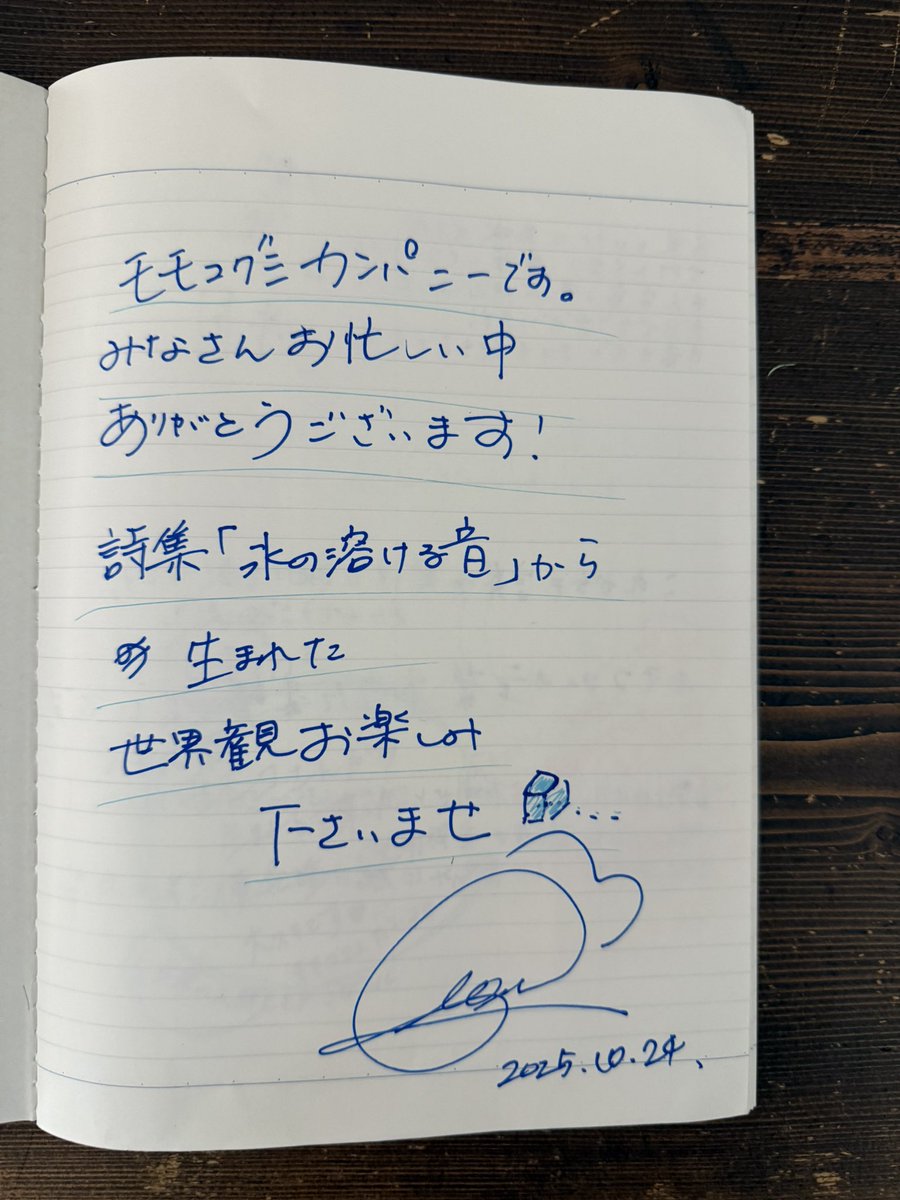 モモコグミカンパニーです。
みなさんお忙しい中
ありがとうございます!
詩集「氷の溶ける音」から
生まれた
世界観お楽しみ
下さいませ ...
2025.10.24.